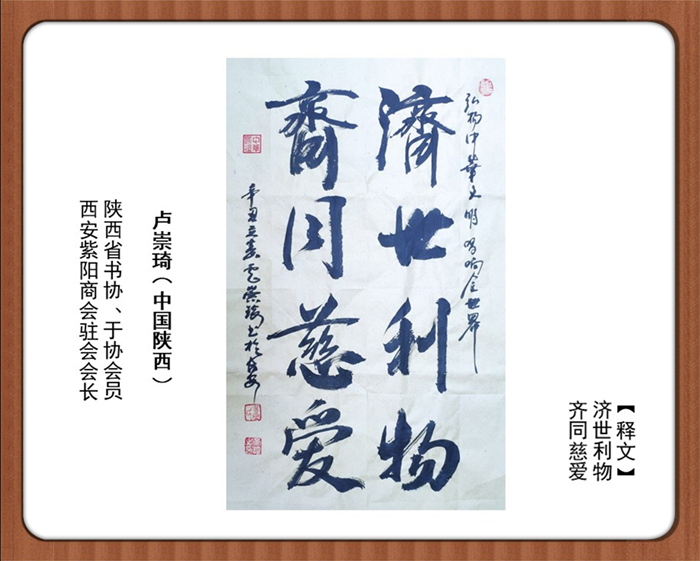 【释文】
济世利物
齐同慈爱
弘扬中华文明唱响全世界
濟世利物
齊同慈爱
辛丑立春 崇琦书於长安
卢崇琦（中国陕西）
陕西省书协、于协会员
西安紫阳商会驻会会长